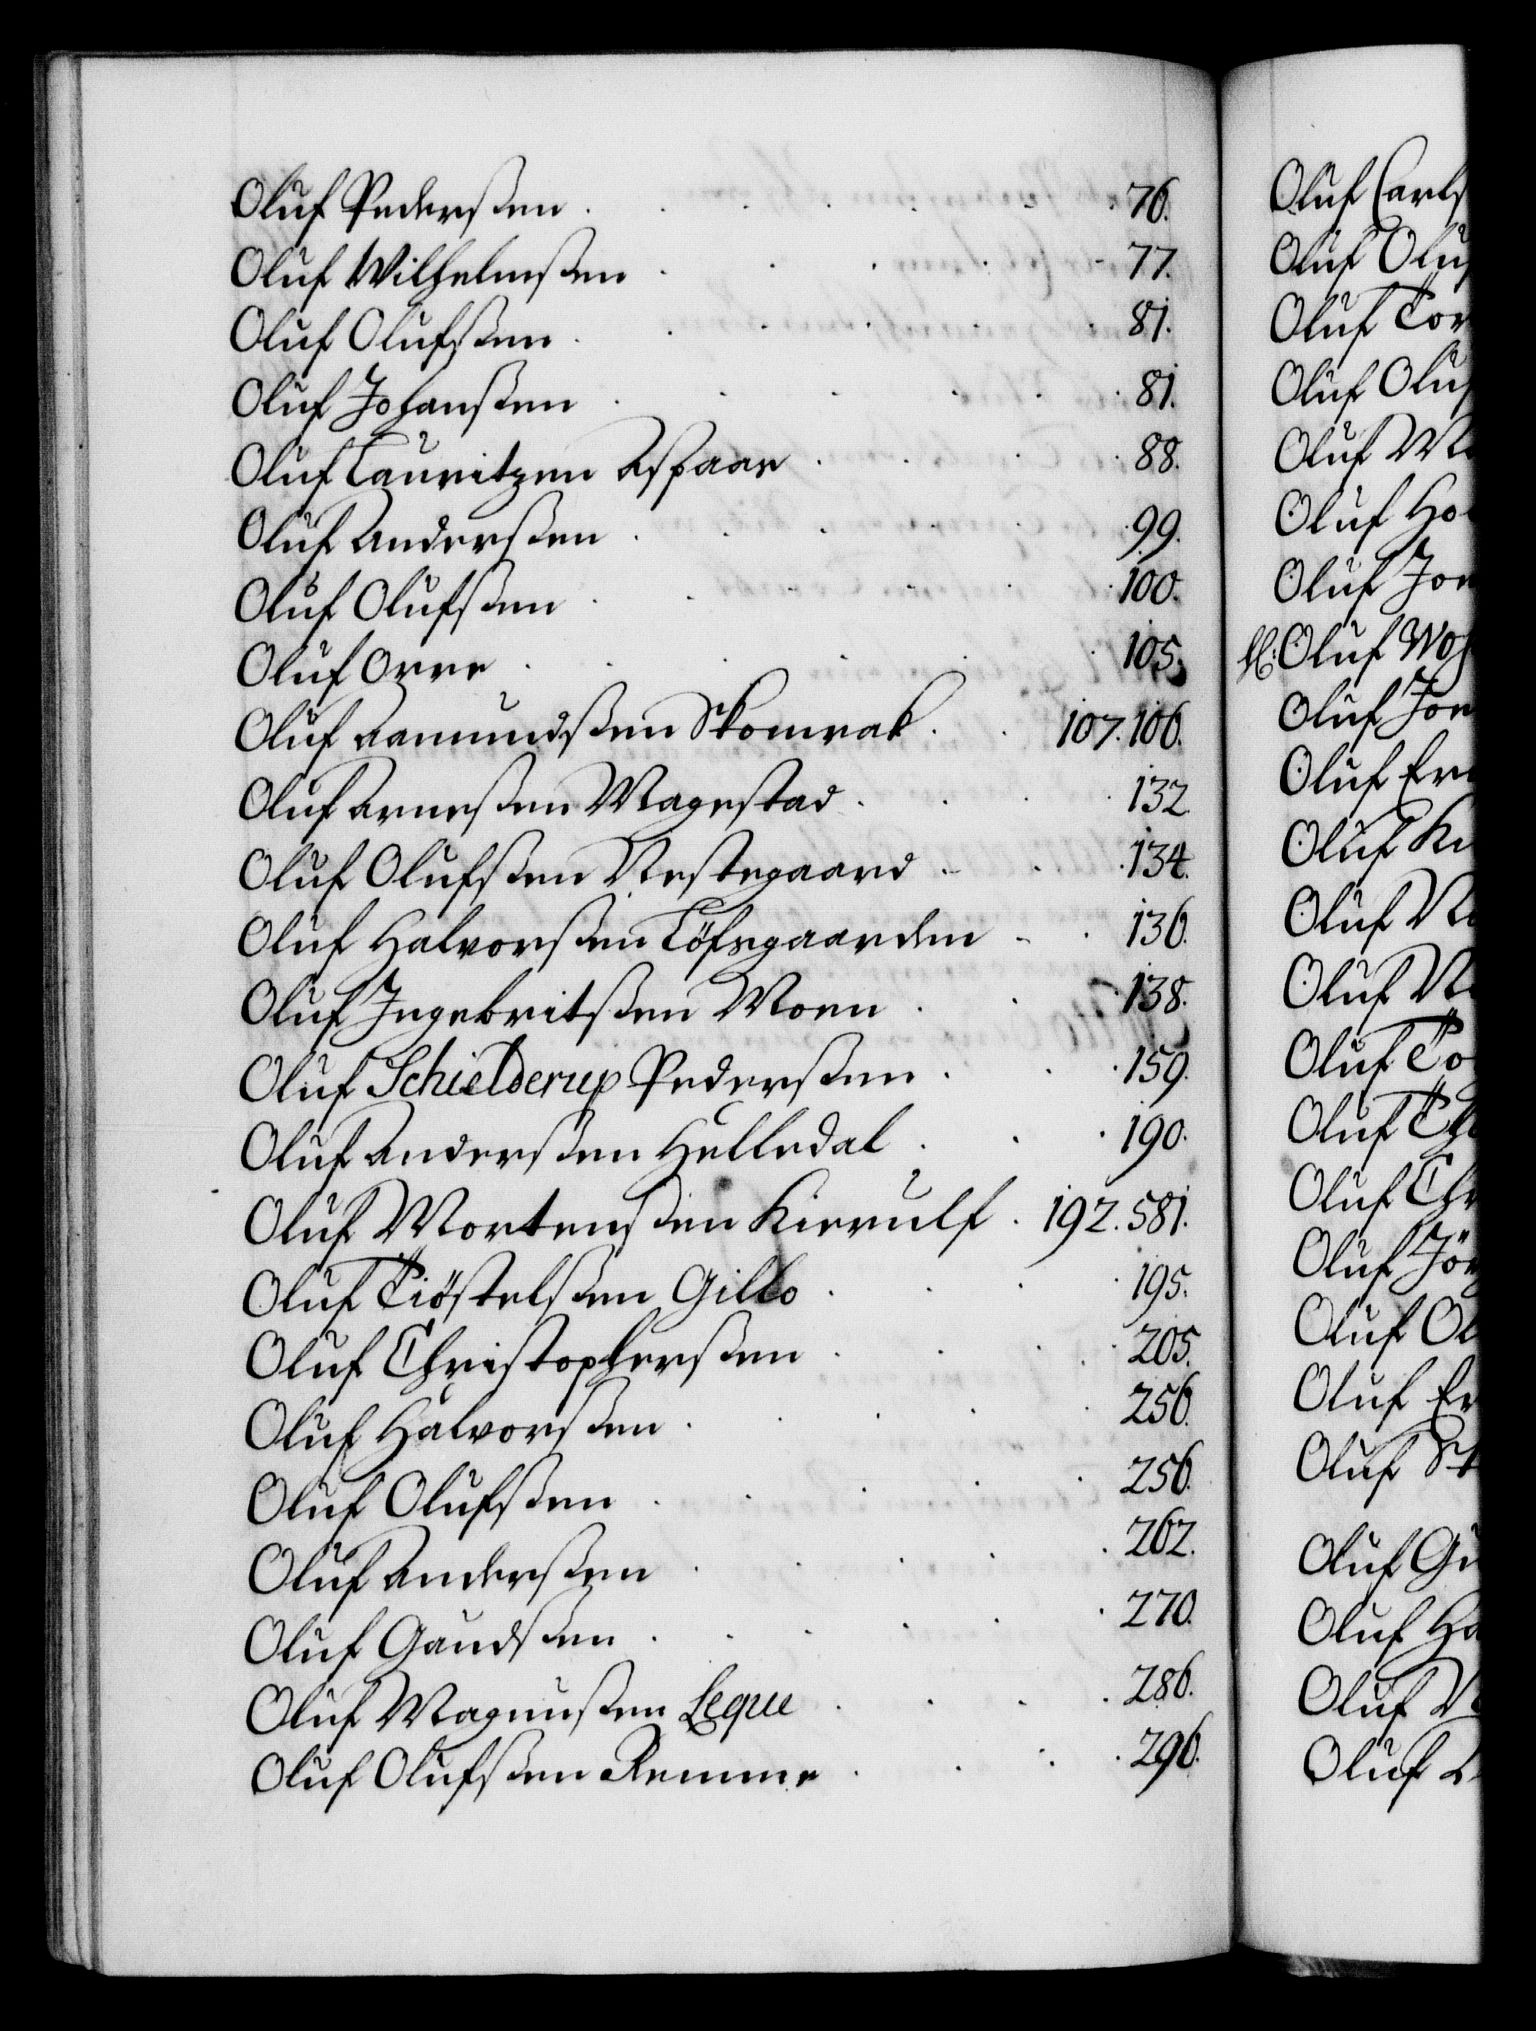 Oluf Pederßen . . . . . . 76.
Oluf Wilhelmßen . . . . - 77.
Oluf Olufsßen . . . . . 81.
Oluf Johanßen . . . . . . 81.
Oluf Lauritzen Aspaas . . . . 88.
Oluf Anderßen . . . . . 99.
Oluf Olufsßen . . . . . 100.
Oluf Orre . . . . . 105.
Oluf Aamundsßen Skomrak . . 107. 106.
Oluf Arneßen Magestad . . . . 132
Oluf Olufsßen Nestegaard . . . 134.
Oluf Halvorßen Töfsgaarden . . 136.
Oluf Ingebritsßen Moen . . . 138.
Oluf Schielderup Pederßen . . . 159.
Oluf Anderßen Helledal . . . 190.
Oluf Mortensßen Kierulf . 192. 581.
Oluf Tiöstelsßen Gillo . . . . 195.
Oluf Christopherßen . . . . 205.
Oluf Halvorsßen . . . . . 256.
Oluf Olufsßen . . . . . 256.
Oluf Anderßen . . . . . 262.
Oluf Gaudsßen . . . . . . 270.
Oluf Magnusßen Leque . . . . 286.
Oluf Olufsßen Remme . . . . 296.
Oluf Carls
Oluf Oluf
Oluf Tor
Oluf Oluf
Oluf
Oluf Ho
Oluf Jon
Oluf
Oluf Jon
Oluf Er
Oluf Ki
Oluf
Oluf
Oluf To
Oluf
Oluf Chr
Oluf Jör
Oluf Ol
Oluf Er
Oluf St
Oluf Gu
Oluf Ha
Oluf
Oluf